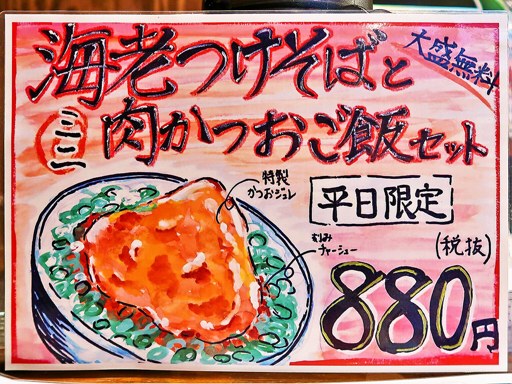 海老つけそばと
大盛無料
ミニ肉かつおご飯セット
特製
かつおジュレ
平日限定
むねみ
チャーシュー
(税抜)
880円